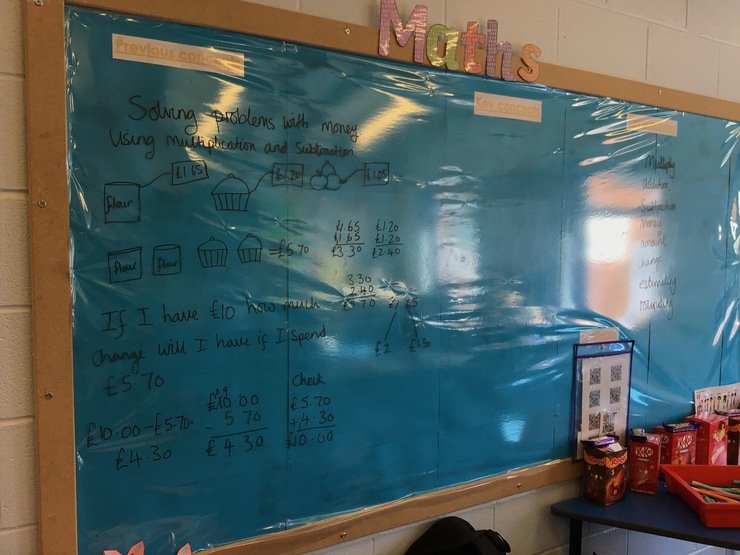 Maths
Previous
Key concepts
Solving problems with money
Using multiplication and Subtraction
flour
£1.65
£1.20
£1.05
flour
flour
=£5.70
1.65
£1.65
£3.30
£1.20
£1.20
£2.40
3.30
2.40
5.70
£2
If I have £10 how much
change will I have if I spend
£5.70
£10.00-£5.70=
£4.30
£10.00
- 5.70
£4.30
Check
£5.70
+4.30
£10.00
Multiply
addition
Subtraction
money
amount
change
estimating
rounding
KitKat